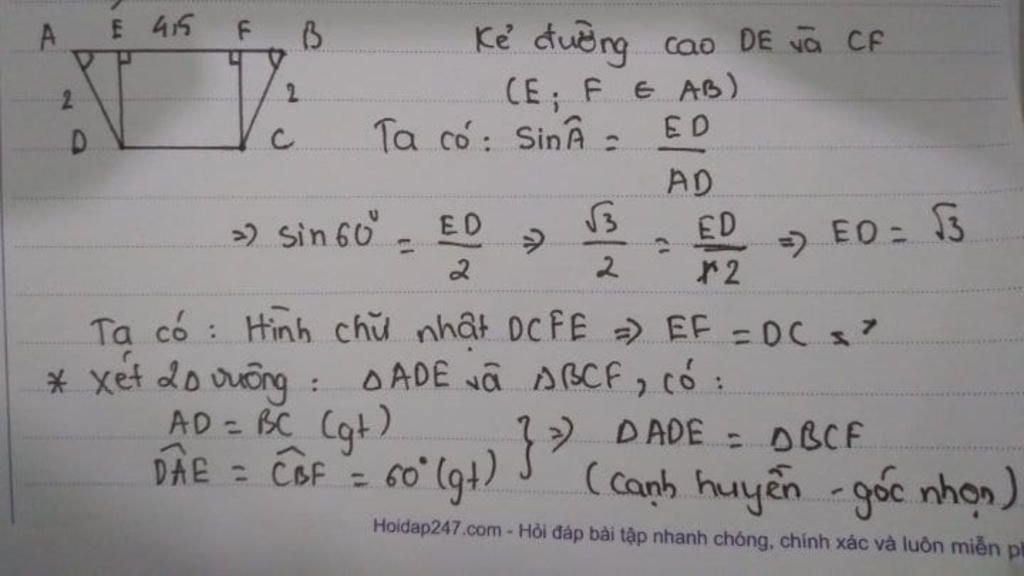 A E 4,5 F B
Kẻ đường cao DE và CF
(E; F ∈ AB)
2 2
D C
Ta có: Sin Â = ED/AD
=> sin60° = ED/2 => √3/2 = ED/2 => ED = √3
Ta có: Hình chữ nhật DCFE => EF = DC
* Xét 2Δ vuông: ΔADE và ΔBCF, có:
AD = BC (gt)
DAE = CBF = 60° (gt) } => ΔADE = ΔBCF
(cạnh huyền - góc nhọn)
Hoidap247.com - Hỏi đáp bài tập nhanh chóng, chính xác và luôn miễn